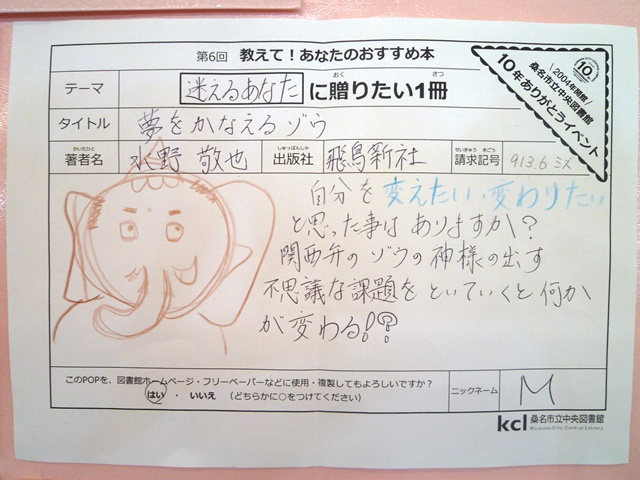 第6回 教えて！あなたのおすすめ本
テーマ 迷えるあなた に贈りたい1冊
おく
さつ
\2004年開館/
桑名市立中央図書館
10年ありがとうイベント
タイトル 夢をかなえるゾウ
かいたひと
著者名 水野 敬也
しゅっぱんしゃ
出版社 飛鳥新社
せいきゅう きごう
請求記号 913.6 ミズ
自分を変えたい・変わりたい
と思った事は ありますか?
関西弁の ゾウの神様の出す
不思議な課題を といていくと 何か
が 変わる!?
このPOPを、図書館ホームページ・フリーペーパーなどに使用・複製してもよろしいですか？
はい ・ いいえ （どちらかに○をつけてください）
ニックネーム M
kcl 桑名市立中央図書館
Kuwana City Central Library